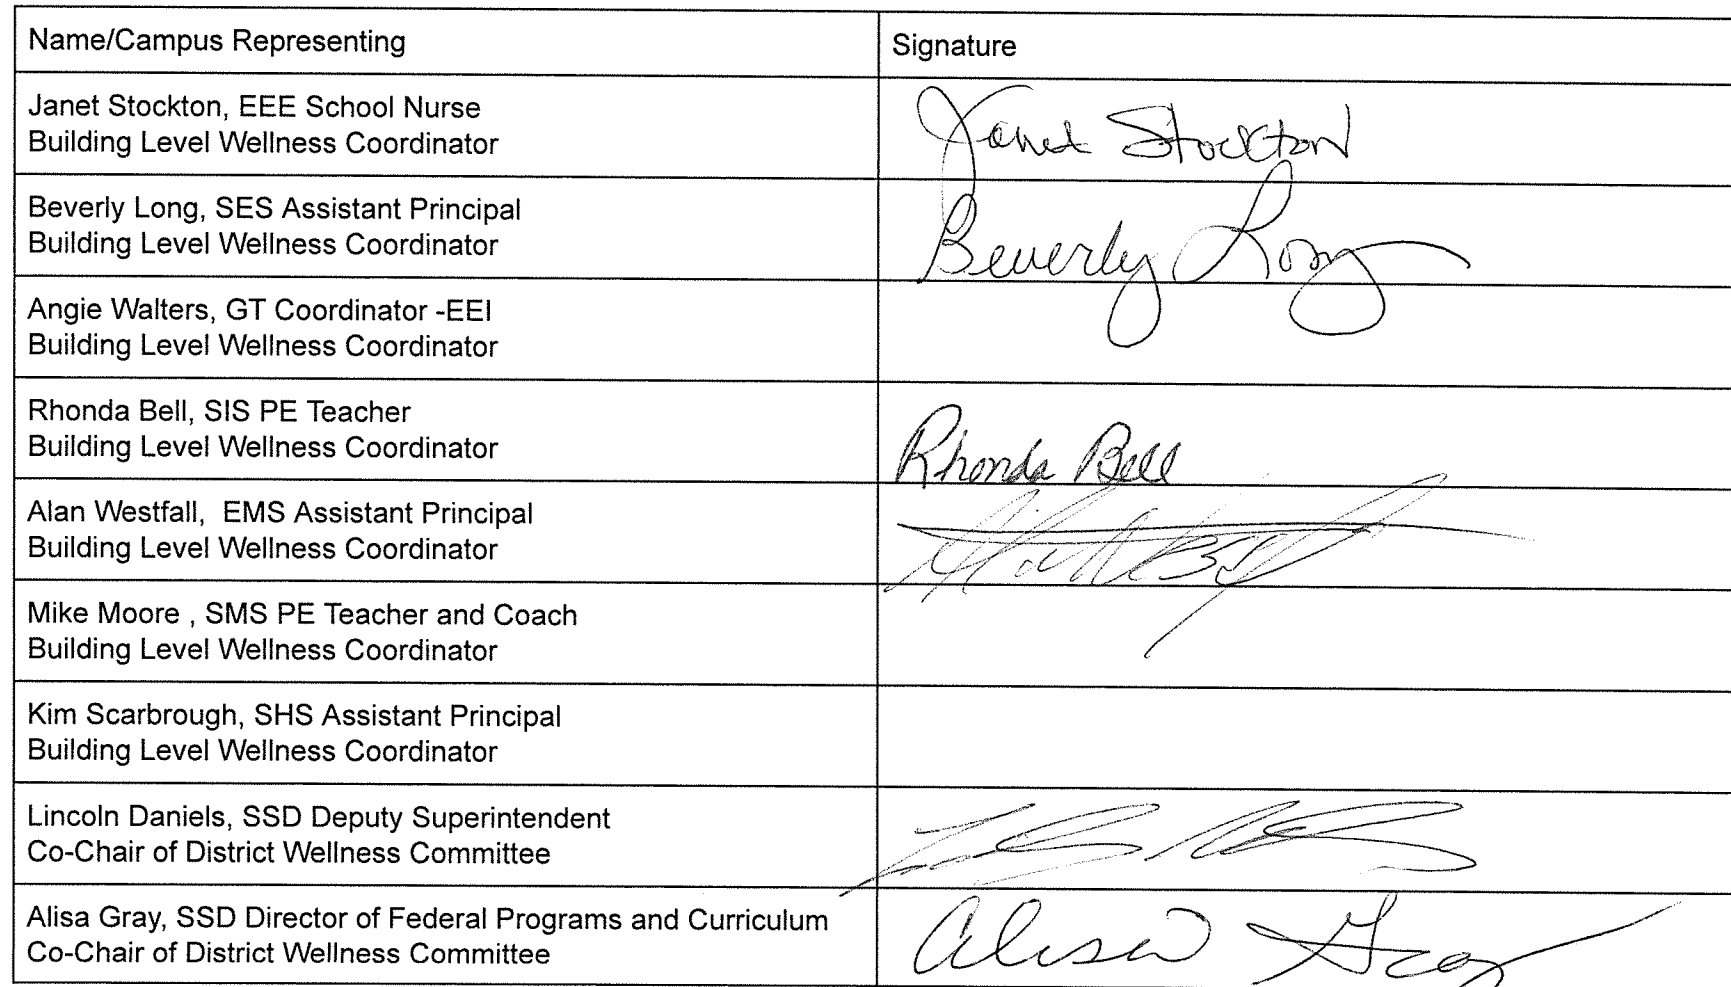 Name/Campus Representing
Signature
Janet Stockton, EEE School Nurse
Building Level Wellness Coordinator
Janet Stockton
Beverly Long, SES Assistant Principal
Building Level Wellness Coordinator
Beverly Long
Angie Walters, GT Coordinator -EEI
Building Level Wellness Coordinator
Rhonda Bell, SIS PE Teacher
Building Level Wellness Coordinator
Rhonda Bell
Alan Westfall,  EMS Assistant Principal
Building Level Wellness Coordinator
Mike Moore , SMS PE Teacher and Coach
Building Level Wellness Coordinator
Kim Scarbrough, SHS Assistant Principal
Building Level Wellness Coordinator
Lincoln Daniels, SSD Deputy Superintendent
Co-Chair of District Wellness Committee
Alisa Gray, SSD Director of Federal Programs and Curriculum
Co-Chair of District Wellness Committee
Alisa Gray